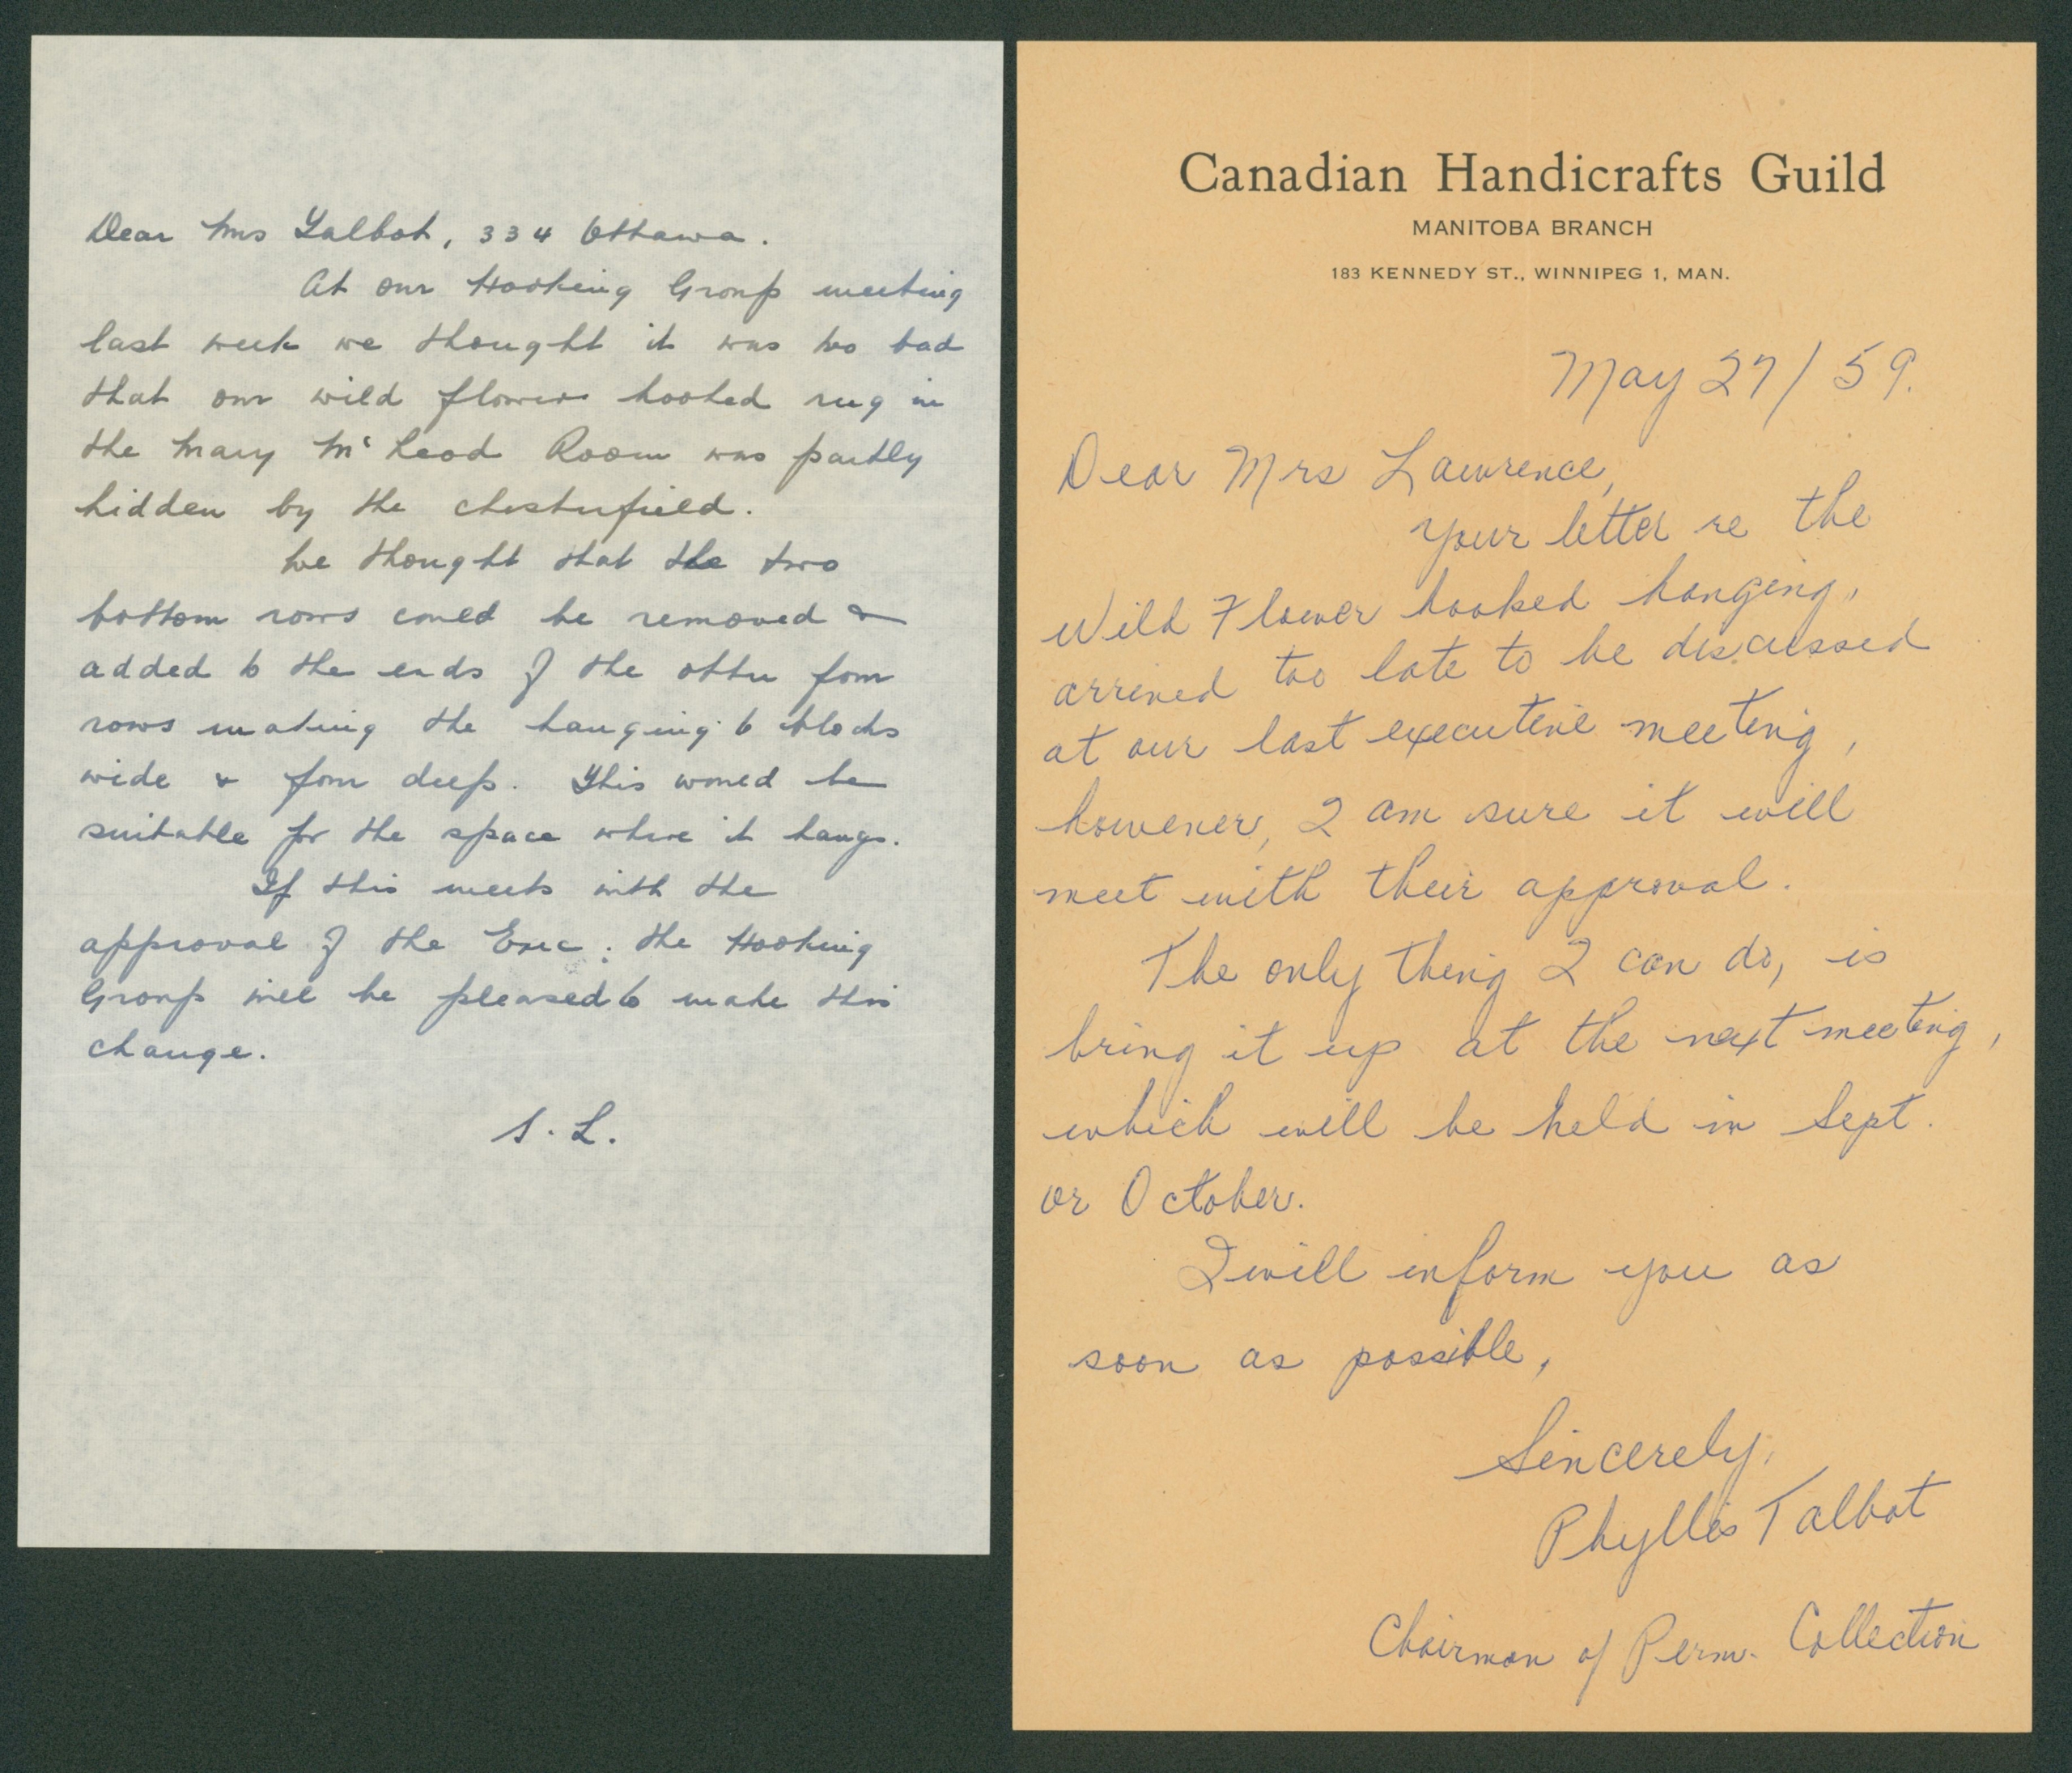 Dear Mrs Talbot, 334 Ottawa.
At our Hooking Group meeting
last week we thought it was too bad
that our wild flowers hooked rug in
the Mary McLeod Room was partly
hidden by the chesterfield.
We thought that the two
bottom rows could be removed &
added to the ends of the other four
rows making the hanging 6 blocks
wide & four deep. This would be
suitable for the space where it hangs.
If this meets with the
approval of the Exec: the Hooking
Group will be pleased to make this
change.
S. L.
Canadian Handicrafts Guild
MANITOBA BRANCH
183 KENNEDY ST., WINNIPEG 1, MAN.
May 27/59.
Dear Mrs Lawrence,
Your letter re the
Wild Flower hooked hanging,
arrived too late to be discussed
at our last executive meeting,
however, I am sure it will
meet with their approval.
The only thing I can do, is
bring it up at the next meeting,
which will be held in Sept.
or October.
I will inform you as
soon as possible,
Sincerely,
Phyllis Talbot
Chairman of Perm. Collection